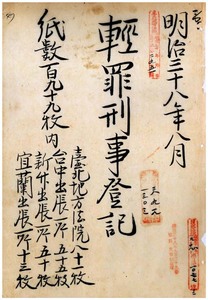 明治三十八年八月
輕罪刑事登記
紙數百九十九枚內
臺北地方法院八十一枚
台中出張所五十五枚
新竹出張所五十枚
宜蘭出張所十三枚